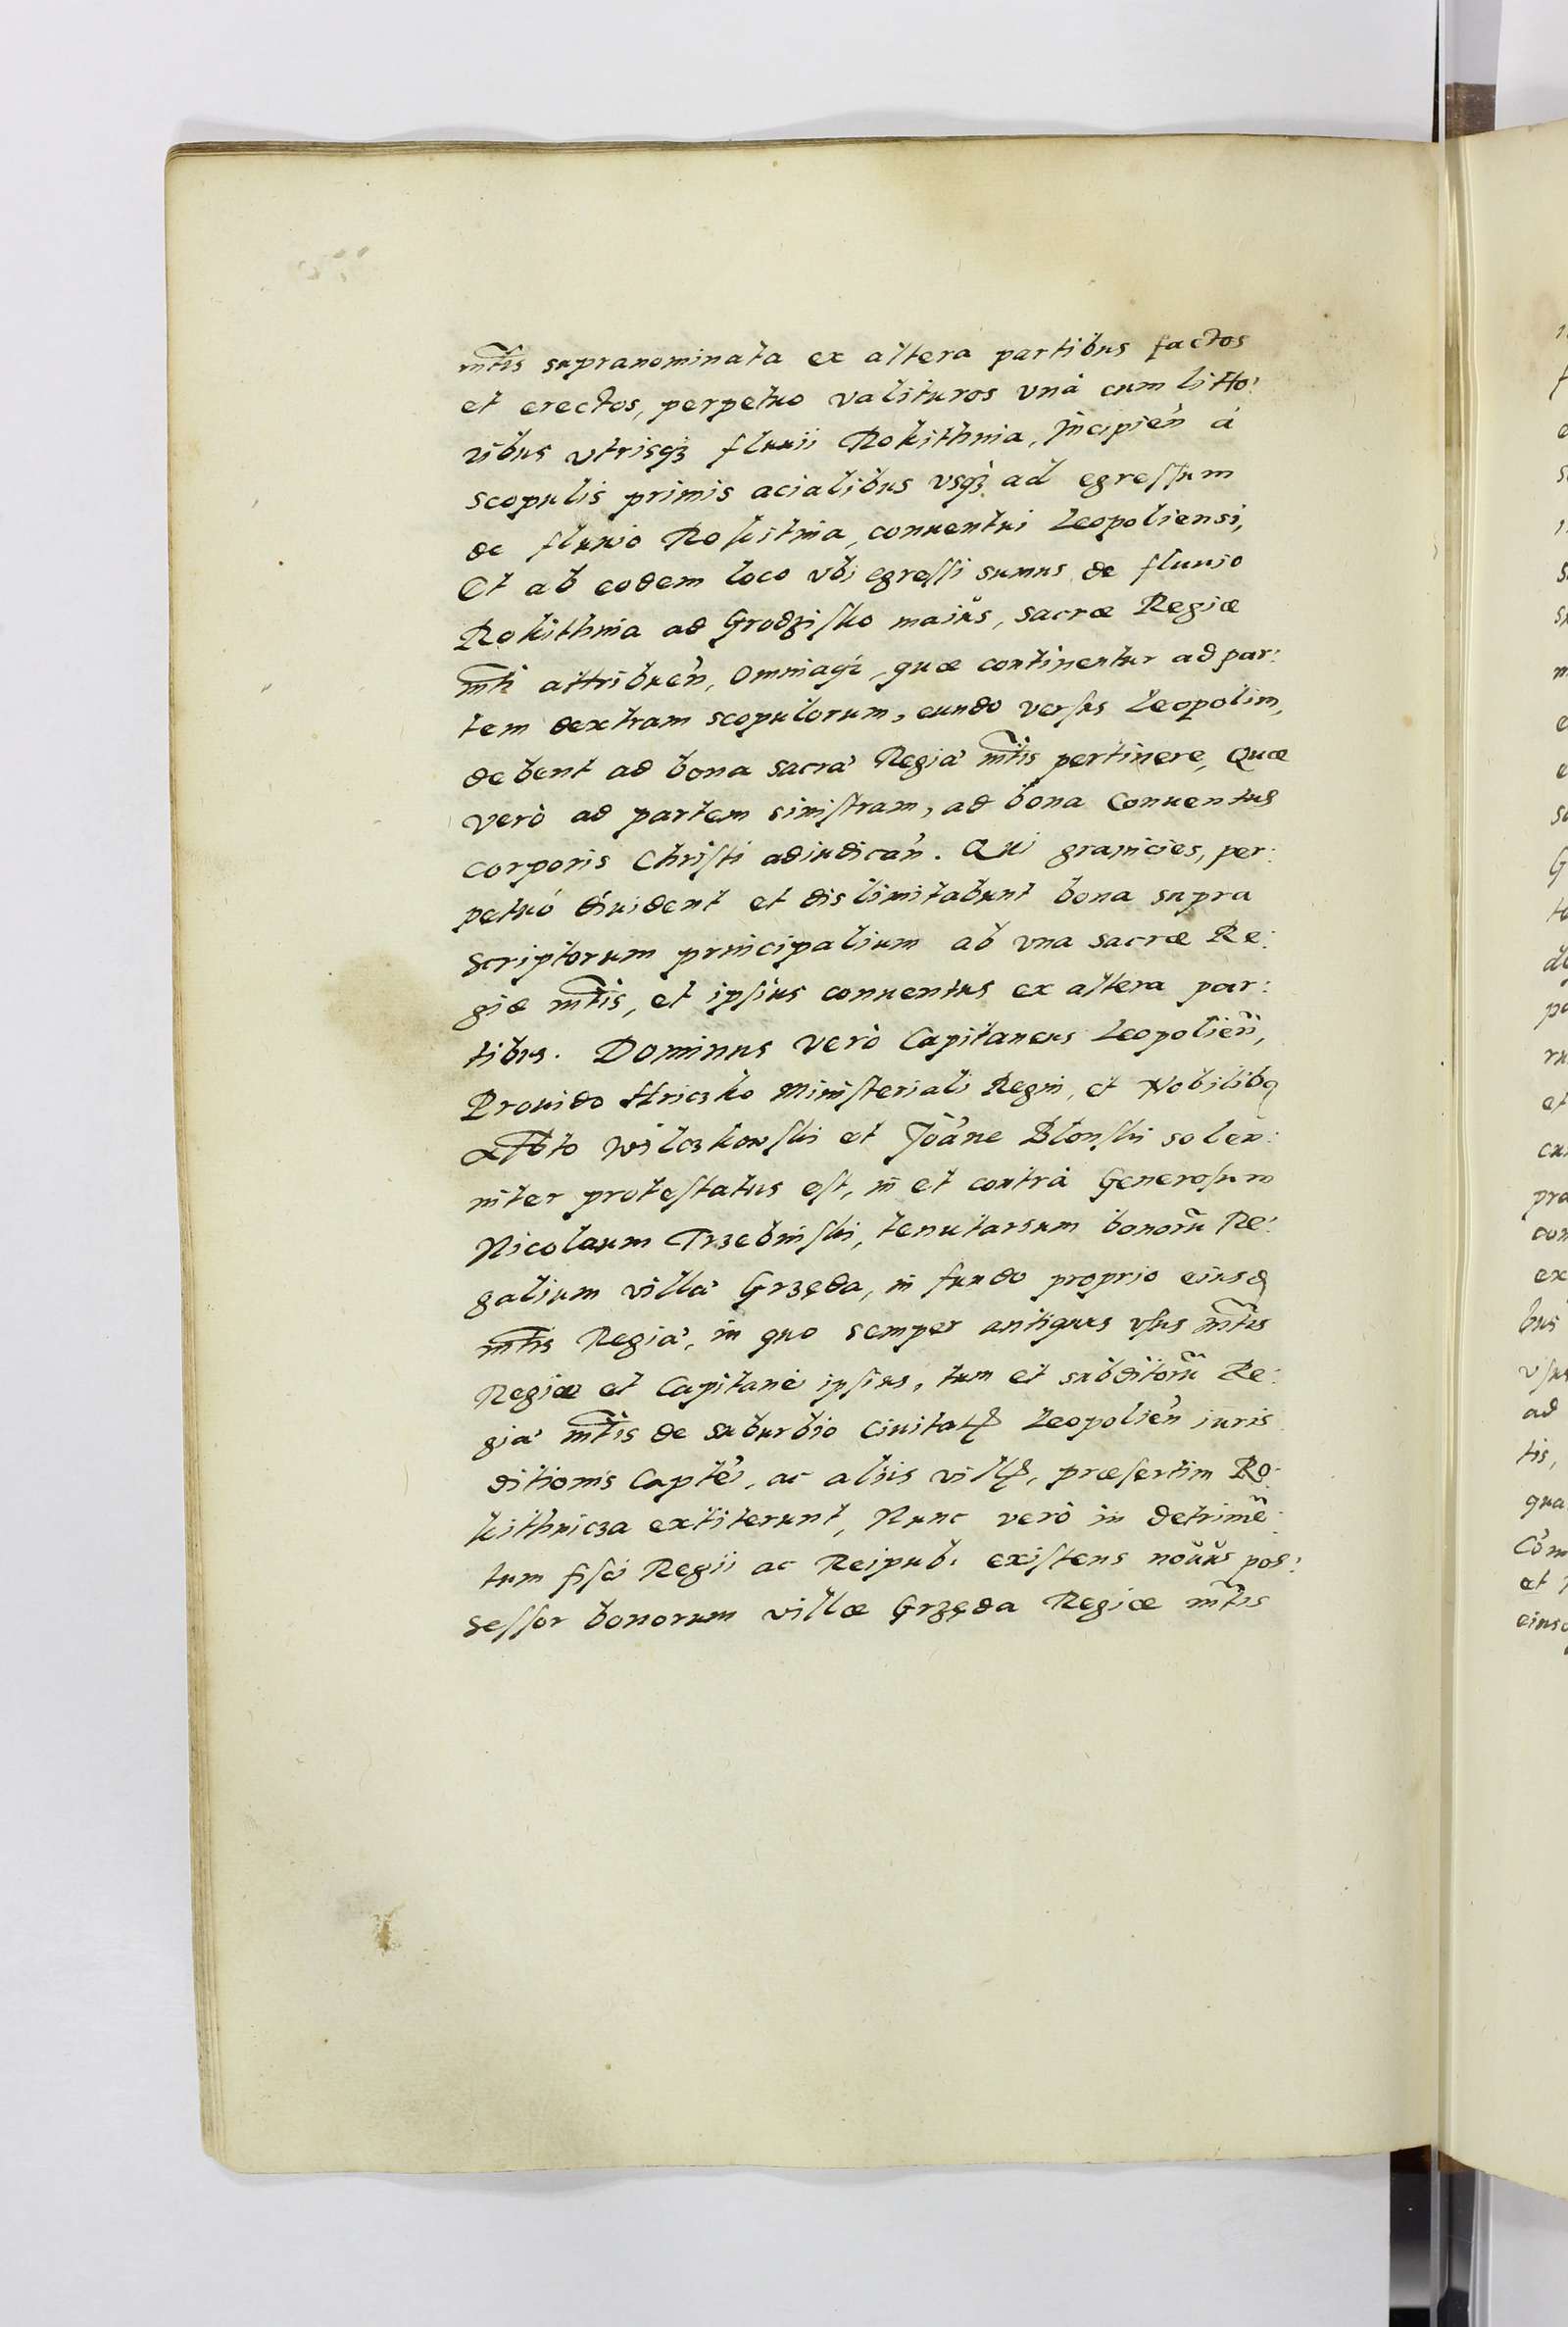 mtis supranominata ex altera partibus factos
et erectos, perpetuo valituros vnà cum litto:
ribus vtrisq3 fluuii Rokithnia, Incipien̄ à
scopulis primis acialibus vsq3 ad egressum
de fluuio Rokitnia, conuentui Leopoliensi,
Et ab eodem loco vbi egressi sumus de fluuio
Rokithnia ad Grodzisko maius, sacræ Regiæ
mti attribuen̄, omniaq3, quæ continentur ad par:
tem dextram scopulorum, eundo versus Leopolim,
debent ad bona sacra' Regia' mtis pertinere, Quæ
verò ad partem sinistram, ad bona Conuentus
corporis Christi adiudican̄. Qui granicies, per:
petuó diuident et dislimitabunt bona supra
scriptorum principalium ab vna sacræ Re:
giæ mtis, et ipsius conuentus ex altera par:
tibus. Dominus verò Capitaneus Leopolien̄,
Prouido Hriczko Ministeriali Regni, et Nobilibq
Wilczkowski et Joāne Blonski solen:
niter protestatus est, in et contrà Generosum
Nicolaum Trzebinski, tenutarium bonorū Re:
galium villa' Grzęda, in fundo proprio eiusd
mtis Regia', in quo semper antiquus vsus mtis
Regiæ et Capitanei ipsius, tum et subditorū Re:
gia' mtis de suburbio Ciuitatꝭ Leopolien̄ iuris
ditionis Captēi, ac aliis villꝭ, præsertim Ro:
kithnicza extiterunt, Nunc verò in detrimē:
tum fisci Regii ac Reipub. existens nouus pos:
sessor bonorum villæ Grzęda Regiæ mtis